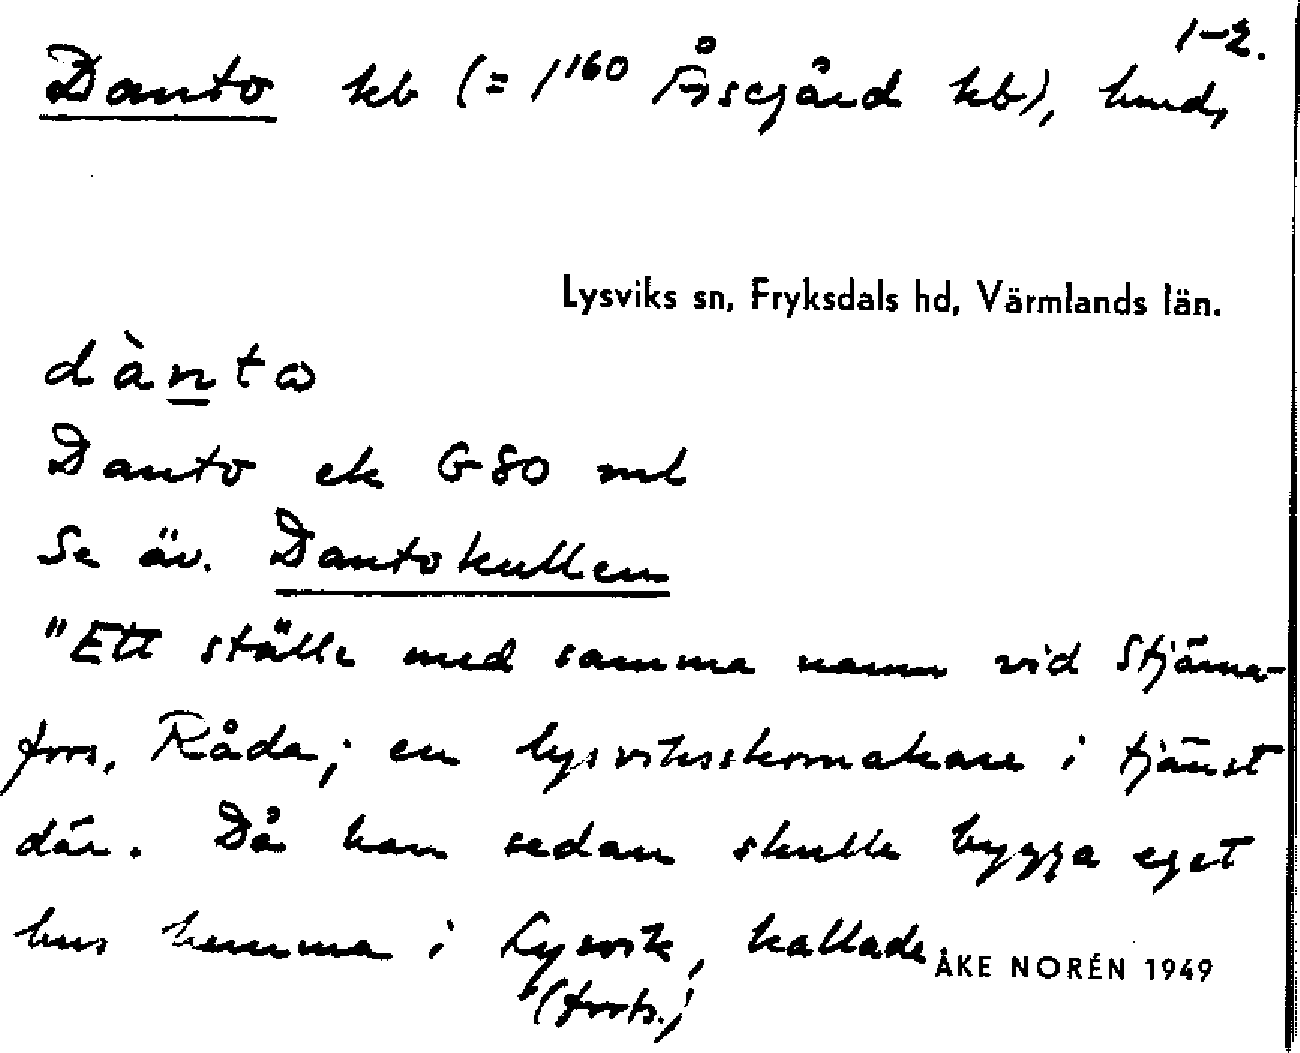 1-2.
Danto kb (= 1¹⁶⁰ Åsegård kb), hmd,
Lysviks sn, Fryksdals hd, Värmlands län.
dànto
Danto ek G80 ml
Se äv. Dantokullen
"Ett ställe med samma namn vid Stjärne-
fors, Råda; en lysviksskomakare i tjänst
där. Då han sedan skulle bygga eget
hus hemma i Lysvik, kallade
ÅKE NORÉN 1949
(forts.)